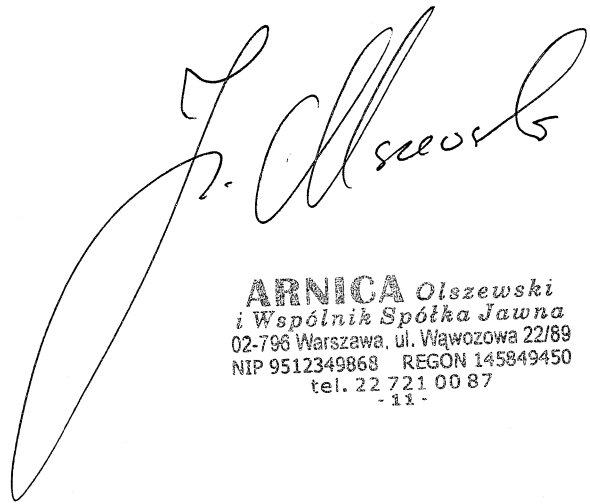 J. Olszewski
ARNICA Olszewski
i Wspólnik Spółka Jawna
02-796 Warszawa, ul. Wąwozowa 22/89
NIP 9512349868 REGON 145849450
tel. 22 721 00 87
- 11 -